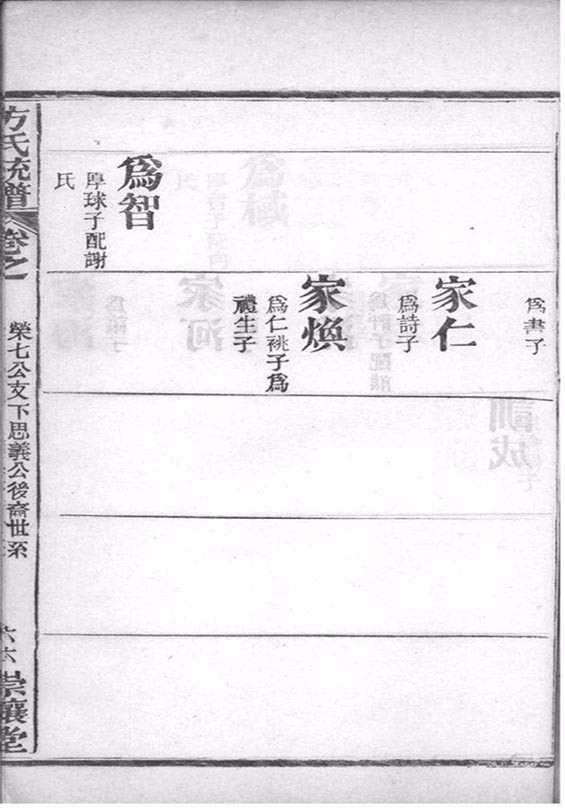 爲書子
家仁
爲詩子
家煥
爲仁祧子爲
禮生子
爲智
厚球子配謝
氏
方氏統譜
卷之一
榮七公支下思義公後裔世系
六六
崇讓堂